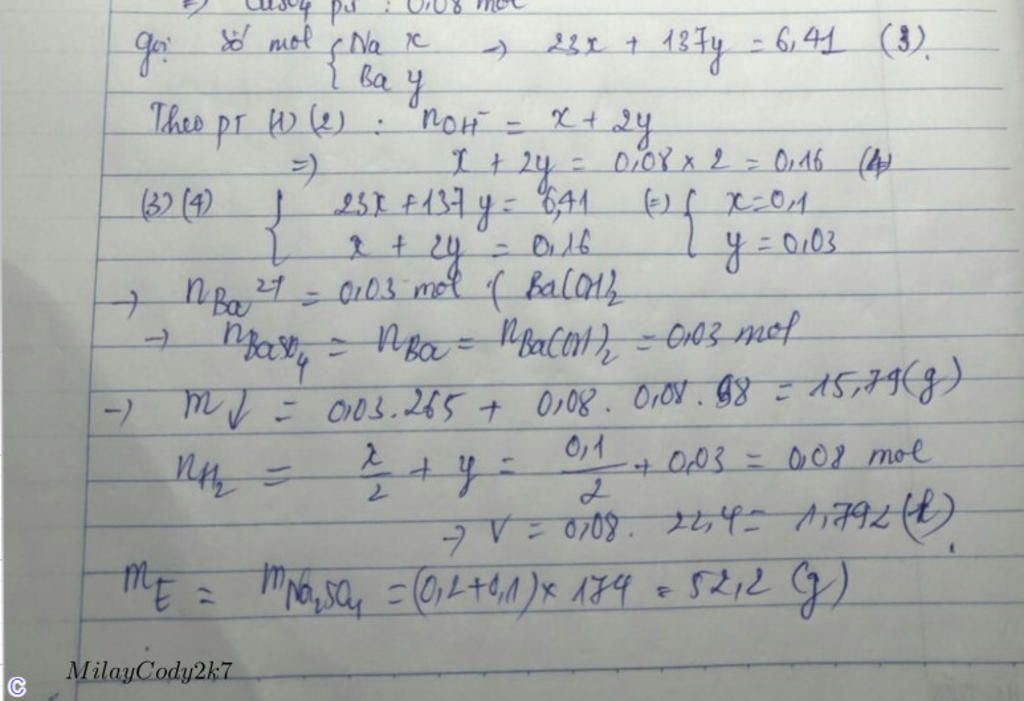 =) CuSO4 pư : 0,08 mol
gọi số mol { Na x → 23x + 137y = 6,41 (3).
Ba y
Theo pt (1) (2) : nOH- = x + 2y
=) x + 2y = 0,08 x 2 = 0,16 (4)
(3) (4) { 23x + 137y = 6,41 (=) { x = 0,1
x + 2y = 0,16 y = 0,03
→ nBa2+ = 0,03 mol ( Ba(OH)2
→ nBaSO4 = nBa = nBa(OH)2 = 0,03 mol
→ m↓ = 0,03.265 + 0,08. 0,08.98 = 15,79(g)
nH2 = x/2 + y = 0,1/2 + 0,03 = 0,08 mol
→ V = 0,08. 22,4 = 1,792 (l).
mE = mNa2SO4 = (0,2+0,1) x 174 = 52,2 (g)
MilayCody2k7
C